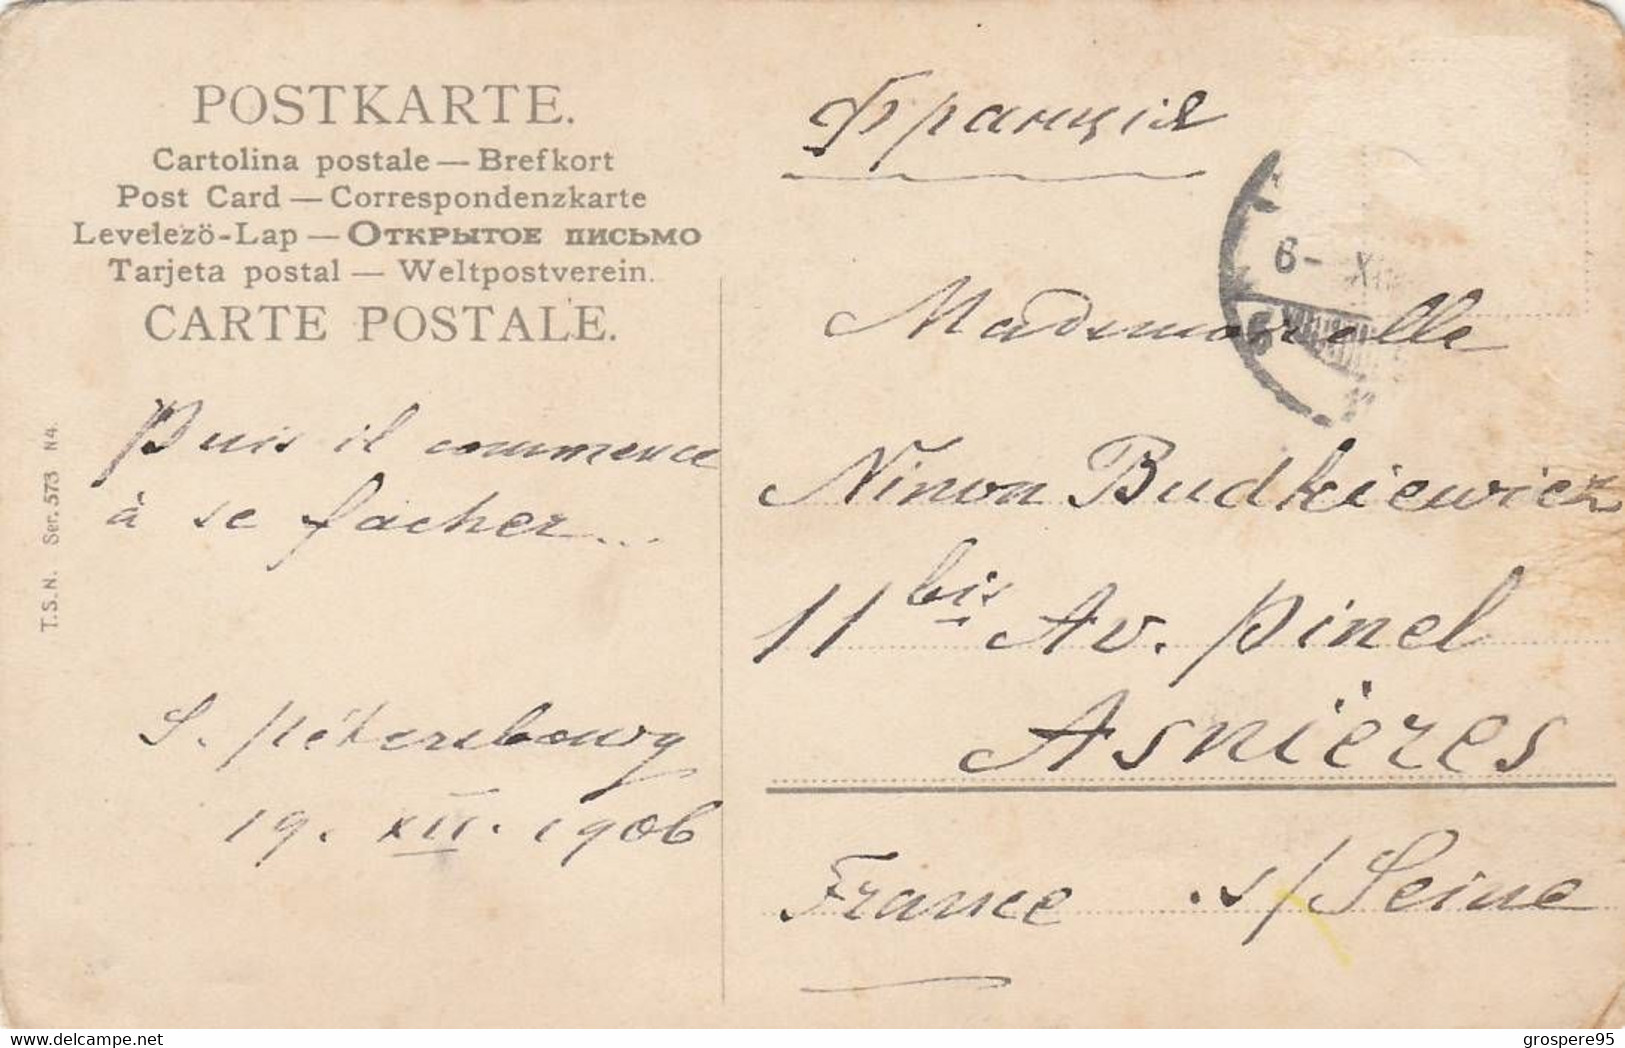 POSTKARTE.
Cartolina postale — Brefkort
Post Card — Correspondenzkarte
Levelezö-Lap — ОТКРЫТОЕ ПИСЬМО
Tarjeta postal — Weltpostverein.
CARTE POSTALE.
T.S.N. Ser. 573 N4.
Puis il commence
à se facher...
S. Pétersbourg
19. XII. 1906
Франція
6- XI
6
Mademoiselle
Ninon Budkiewicz
11 bis Av. Pinel
Asnières
France s/Seine
delcampe.net
grospere95